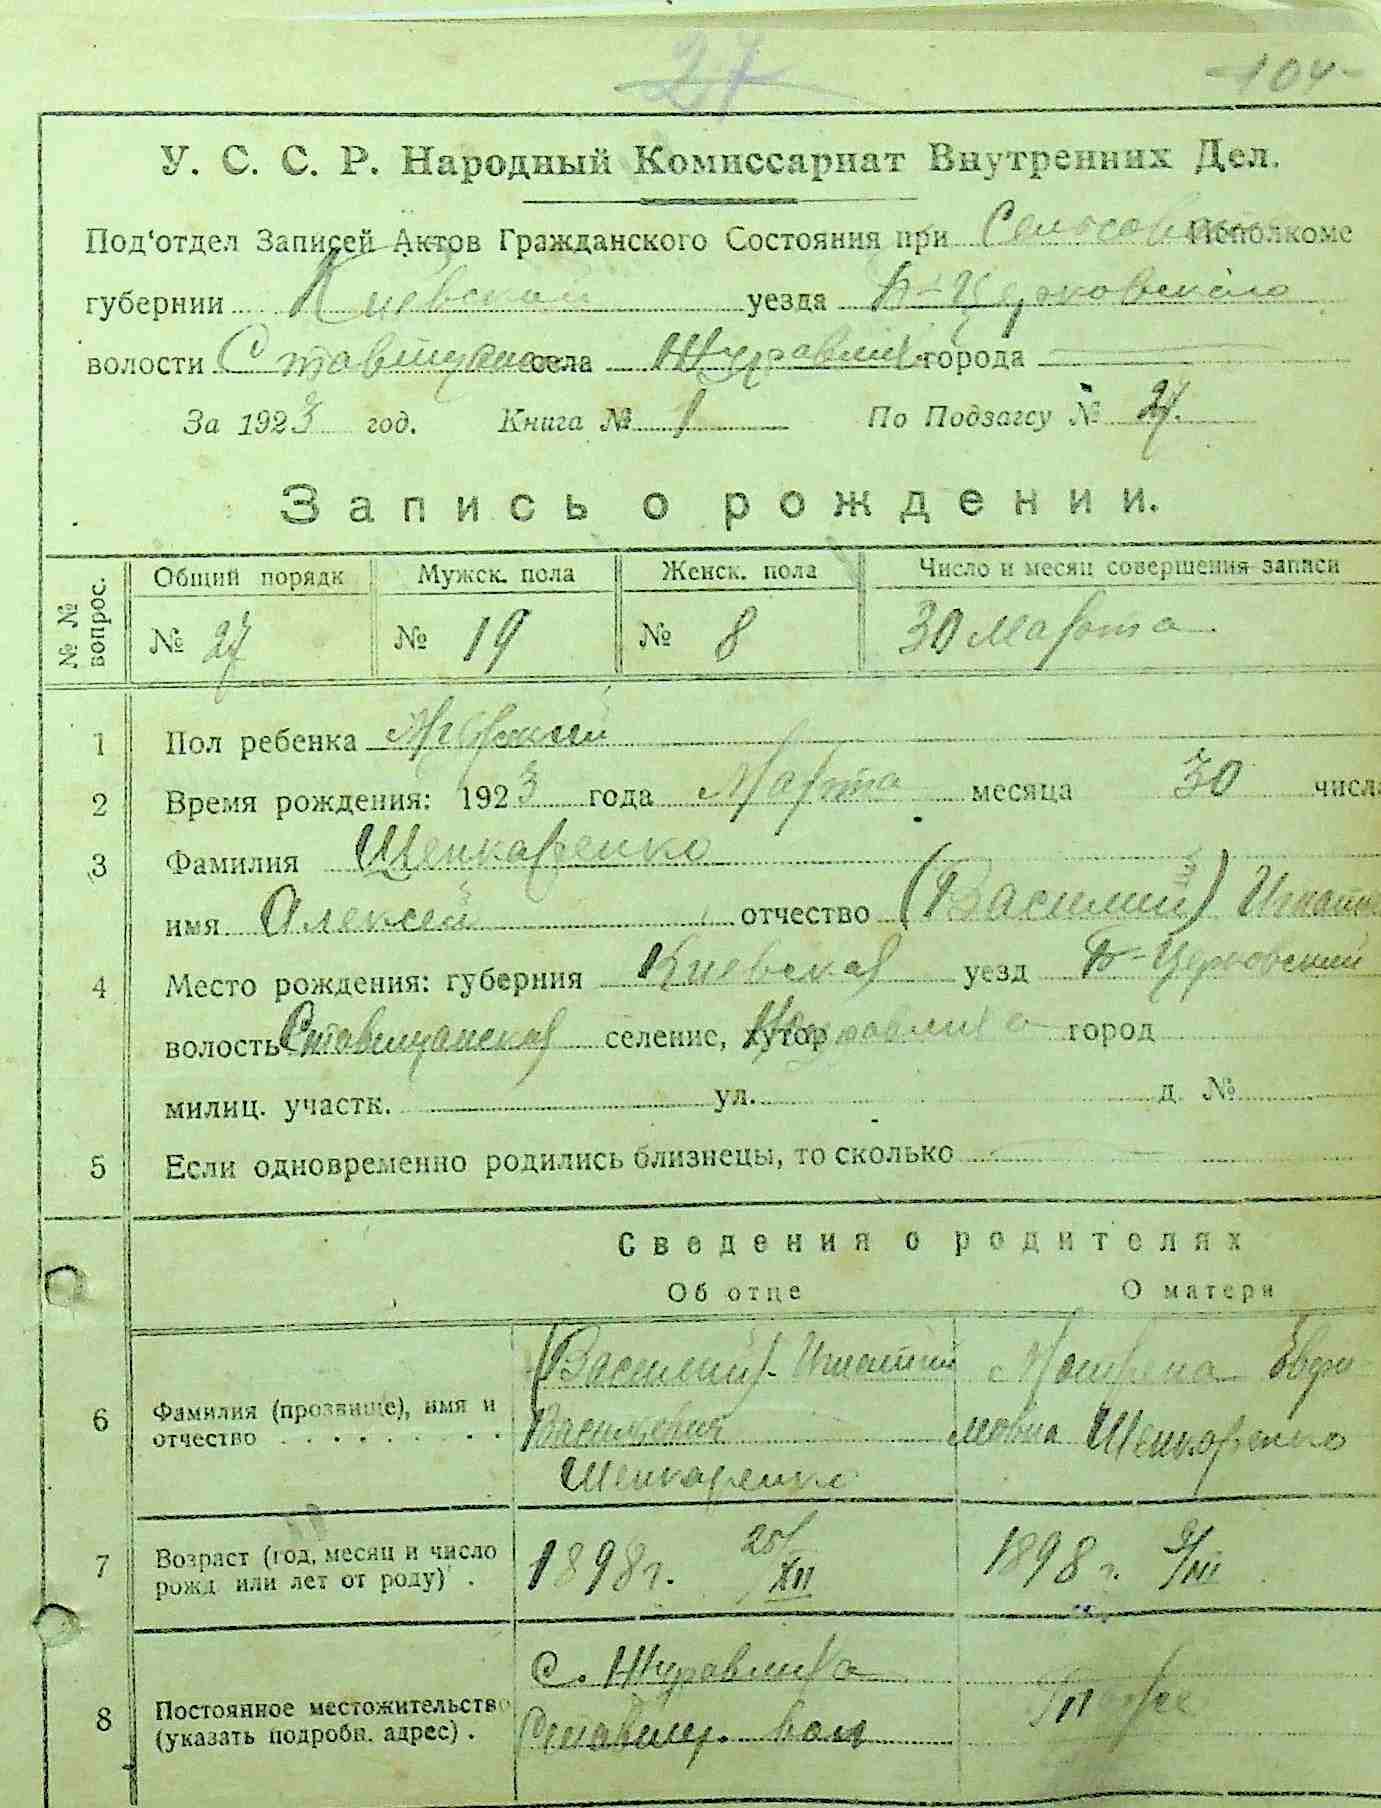 27
104
У. С. С. Р. Народный Комиссариат Внутренних Дел.
Под‘отдел Записей Актов Гражданского Состояния при Исполкоме
губернии Киевской уезда Б-Церковского
волости села города
За 1923 год. Книга № 1 По Подзагсу №
Запись о рождении.
№ № вопрос. Общий порядк Мужск. пола Женск. пола Число и месяц совершения записи
№ 27 № 19 № 8 30 Марта
1 Пол ребенка Мужской
2 Время рождения: 1923 года Марта месяца 30 числа
3 Фамилия Щенкаренко
имя Алексей отчество (Василий)
4 Место рождения: губерния Киевская уезд Б-Церковский
волость Ставищанская селение, хутор город
милиц. участк. ул. д. №
5 Если одновременно родились близнецы, то сколько
Сведения о родителях
Об отце О матери
(Василий)
6 Фамилия (прозвище), имя и отчество Васильевич мовна Щенкаренко
Щенкаренко
7 Возраст (год, месяц и число рожд или лет от роду) . 1898 г. XII 1898 г.
с. Журавлиха
8 Постоянное местожительство (указать подробн. адрес) . Ставищ. вол